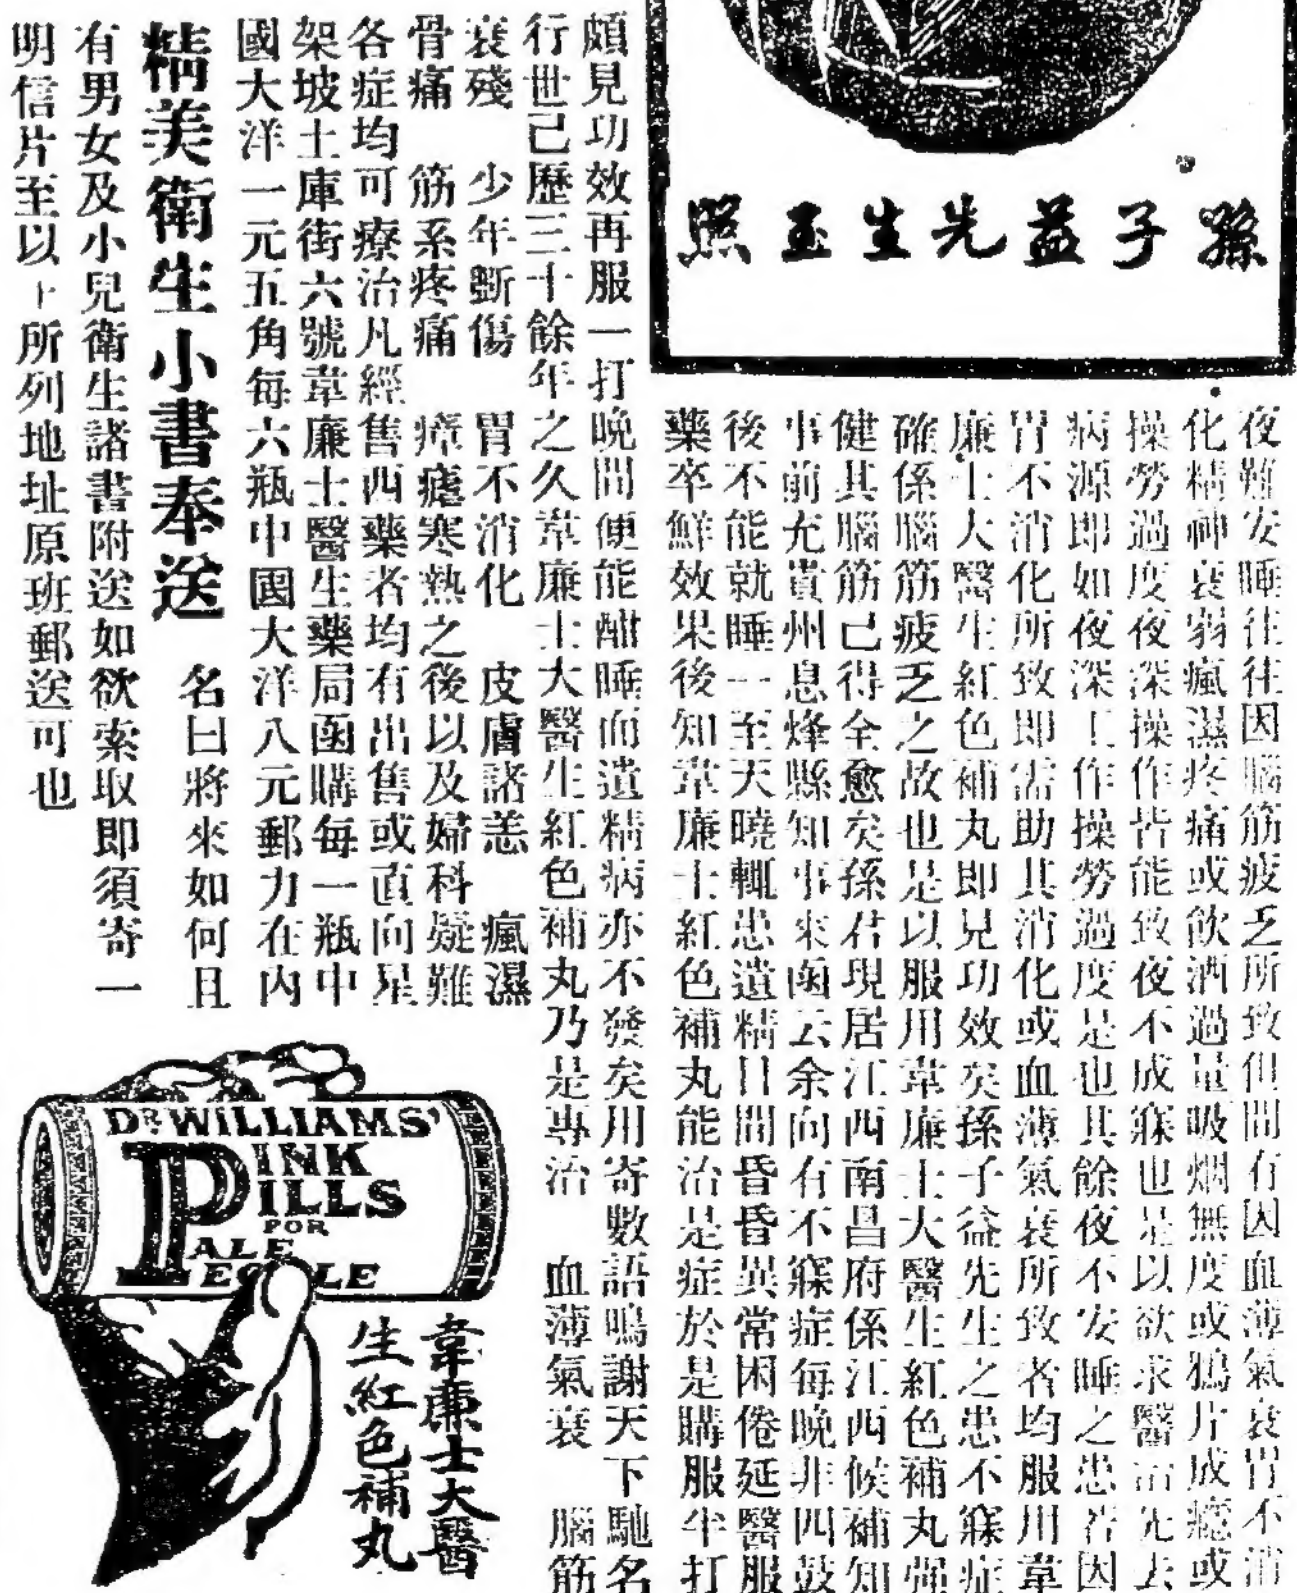 孫子益先生玉照
夜難安睡往往因腦筋疲乏所致但間有因血薄氣衰胃不消
化精神衰弱瘋濕疼痛或飲酒過量吸烟無度或鴉片成癮或
操勞過度夜深操作皆能致夜不成寐也是以欲求醫治先去
病源即如夜深工作操勞過度是也其餘夜不安睡之患若因
胃不消化所致即需助其消化或血薄氣衰所致者均服用韋
廉士大醫生紅色補丸即見功效矣孫子益先生之患不寐症
確係腦筋疲乏之故也是以服用韋廉士大醫生紅色補丸彊
健其腦筋已得全愈矣孫君現居江西南昌府係江西候補知
事前充貴州息烽縣知事來函云余向有不寐症每晚非四鼓
後不能就睡一至天曉輒患遺精日間昏昏異常困倦延醫服
藥卒鮮效果後知韋廉士紅色補丸能治是症於是購服半打
頗見功效再服一打晩間便能酣睡而遺精病亦不發矣用寄數語鳴謝天下馳名
行世已歷三十餘年之久韋廉士大醫生紅色補丸乃是專治 血薄氣衰 腦筋
衰殘 少年斵傷 胃不消化 皮膚諸恙 瘋濕
骨痛 筋系疼痛 瘴瘧寒熱之後以及婦科疑難
各症均可療治凡經售西藥者均有出售或直向星
架坡土庫街六號韋廉士醫生藥局函購每一瓶中
國大洋一元五角每六瓶中國大洋八元郵力在內
精美衛生小書奉送 名曰將來如何且
有男女及小兒衛生諸書附送如欲索取即須寄一
明信片至以上所列地址原班郵送可也
DR WILLIAMS'
PINK
PILLS
FOR
PALE
PEOPLE
韋廉士大醫
生紅色補丸